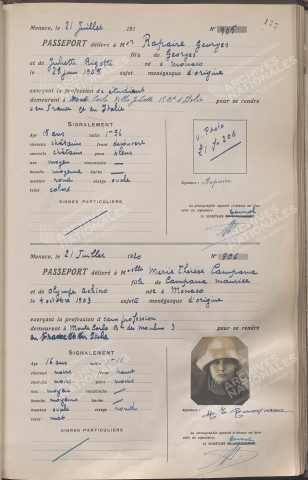 177
Monaco, le 21 Juillet 191 N° 905
PASSEPORT délivré à Mr Rapaire Georges
fils de Georges
et de Juliette Rigotte né à Monaco
le 29 juin 1905 sujet monégasque d'origine
exerçant la profession de étudiant
demeurant à Monte Carlo Villa Juliette Bd d'Italie pour se rendre
en France et en Italie
SIGNALEMENT
âge 15 ans taille 1-36
cheveux châtains front découvert
sourcils châtains yeux bleus
nez moyen moustache
bouche moyenne barbe
menton rond visage ovale
teint coloré
SIGNES PARTICULIERS
v. Photo
Signature : Rapaire
La photographie apposée ci-dessus est bien
celle du signataire.
Monaco, le 21 Juillet 1920 N° 906
PASSEPORT délivré à Melle Marie Thérèse Campana
fille de Campana Maurice
et de Olympe née à Monaco
le 4 octobre 1903 sujette monégasque d'origine
exerçant la profession de sans profession
demeurant à Monte Carlo Bd des Moulins 3 pour se rendre
en France et en Italie
SIGNALEMENT
âge 16 ans taille
cheveux noirs front haut
sourcils noirs yeux noirs
nez moyen moustache
bouche moyenne barbe
menton ovale visage rond
teint mat
SIGNES PARTICULIERS
Signature :
La photographie apposée ci-dessus est bien
celle du signataire.